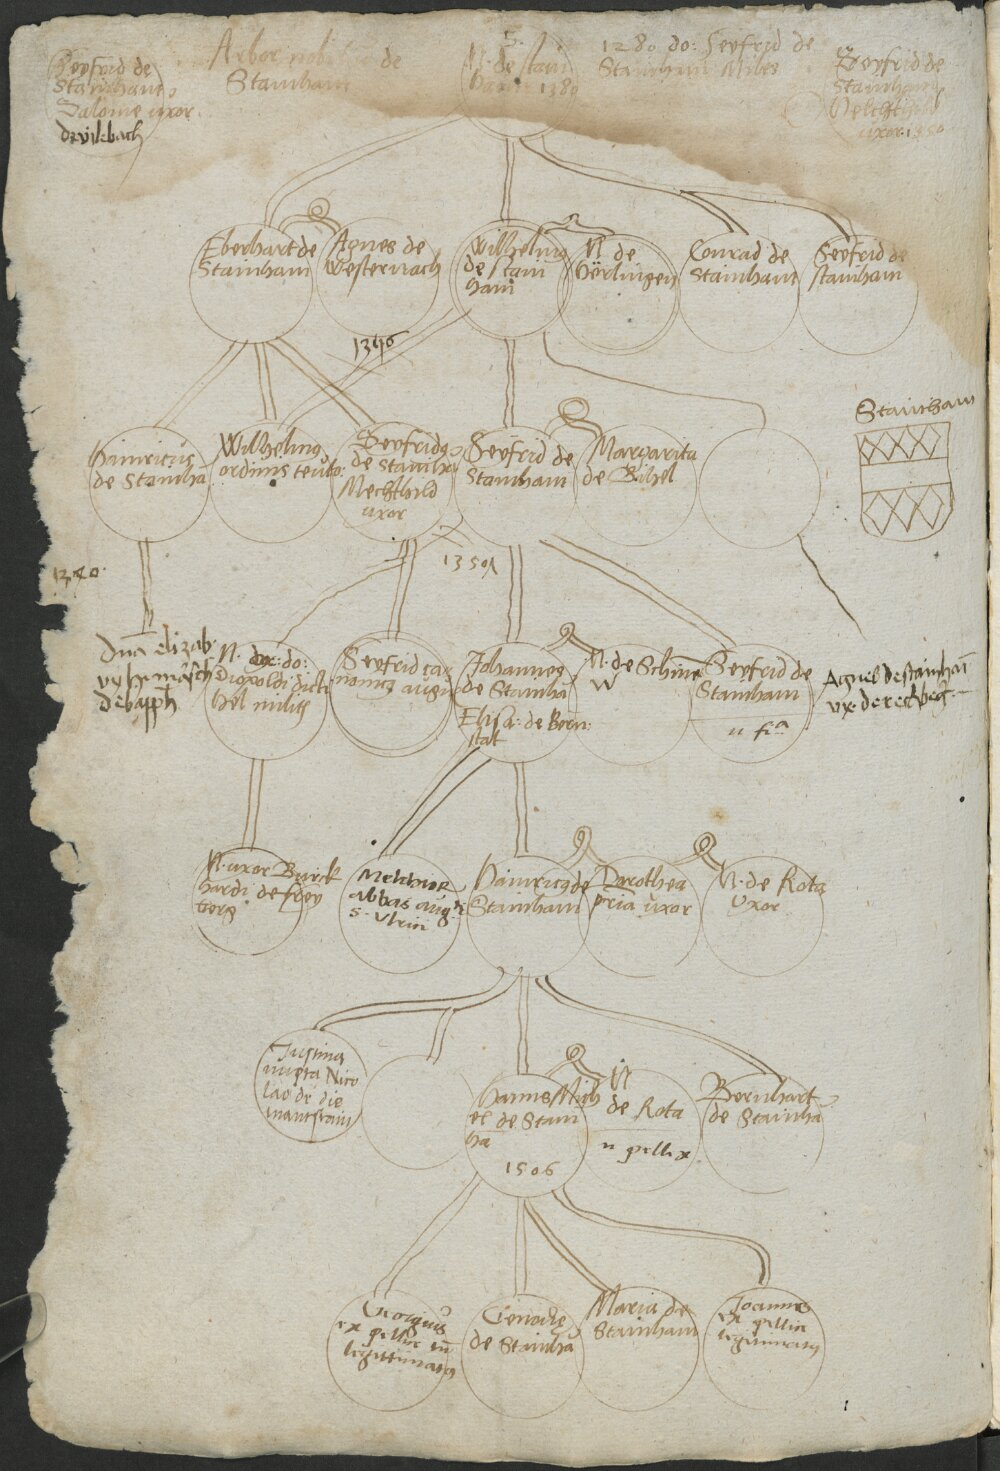 Seyfrid de
Stainham
Salome uxor
de vilsbach
Arbor de
Stainham
S.
N. de stain
ham 1380
1280 do: Seyfrid de
Stainham Miles
Seyfrid de
Stainham
uxor. 1350
Eberhart de
Stainham
Agnes de
Westernach
Wilhelmg
de stain
ham
N de
Hörlingen
Conrad de
Stainham
Seyfrid de
stainham
1346
Stainham
Hainricus
de Stainha
Wilhelmg
ordinis teuto:
Seyfridg
de stainha
Mechthild
uxor
Seyfrid de
Stainham
Margarita
de Bihel
1340
1350
Dna elizab:
N. do:
Diepoldi dicti
hel militis
Seyfrid ca
nonicg augu
Johanneg
de Stainha
Elisa: de Bern
stat
N. de Schin
W
Seyfrid de
Stainham
Agnes de stainham
ux. de rechbeg.
N. uxor Burck
hardi de frey
berg
Melchior
abbas aug.
S. Vlrici
Hainricg de
Stainham
Dorothea
pria uxor
N. de Rota
Uxor
Justina
nupta Nico
lao de die
mantstain
Hanns Mich
el de Stain
ha
1506
N
de Rota
n pellex
Bernhart
de Stainha
Georgius
ex pellice
legittimatg
de Stainha
Maria de
Stainham
Joannes
ex pellice
legitimatg